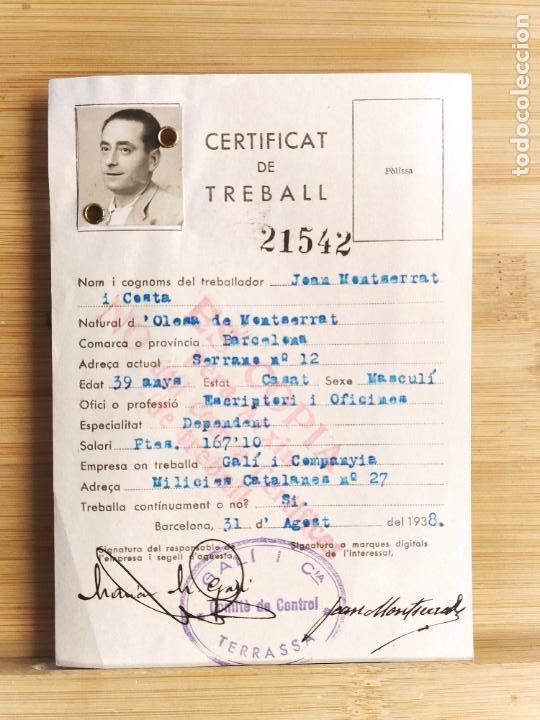 CERTIFICAT
DE
TREBALL
Pòlissa
21542
Nom i cognoms del treballador Joan Montserrat
i Costa
Natural d 'Olesa de Montserrat
Comarca o província Barcelona
Adreça actual Serrano nº 12
Edat 39 anys Estat Casat Sexe Masculí
Ofici o professió Escriptori i Oficines
Especialitat Dependent
Salari Ptes. 167'10
Empresa on treballa Galí i Companyia
Adreça Milicies Catalanes nº 27
Treballa contínuament o no? Si.
Barcelona, 31 d' Agost del 1938.
Signatura del responsable de
l'empresa i segell d'aquesta,
Signatura o marques digitals
de l'interessat,
GALÍ I Cia
Comitè de Control
TERRASSA
Joan Montserrat
CÒPIA
de treball
todocoleccion